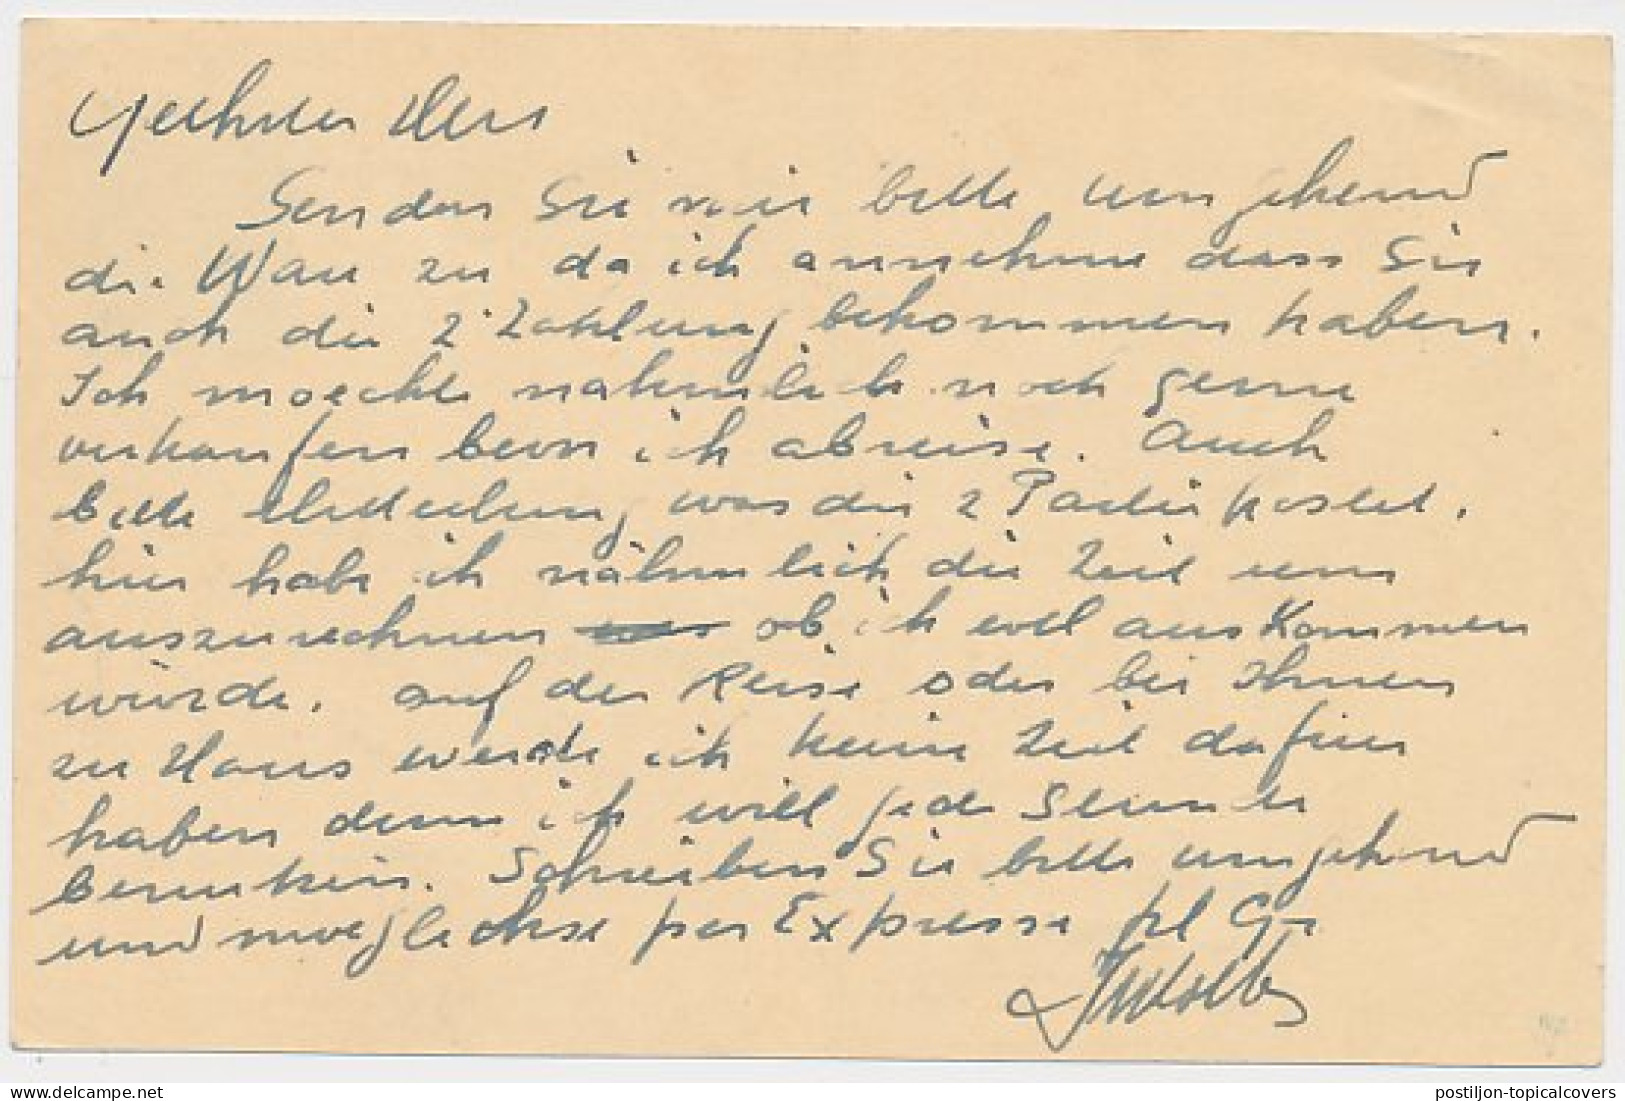 Geehrter Herr
Senden Sie mir bitte umgehend
die Ware zu da ich annehme dass Sie
auch die 2. Zahlung bekommen haben.
Ich moechte nahmlich noch gerne
verkaufen bevor ich abreise. Auch
bitte Mitteilung was die 2 Partie kostet.
hier habe ich nähmlich die Zeit um
auszurechnen ob ich viel auskommen
würde. auf der Reise oder bei Ihnen
zu Haus werde ich keine Zeit dafuer
haben denn ich will jede Stunde
benutzen. Schreiben Sie bitte umgehend
und moeglichst per Expresse
postiljon-topicalcovers
www.delcampe.net